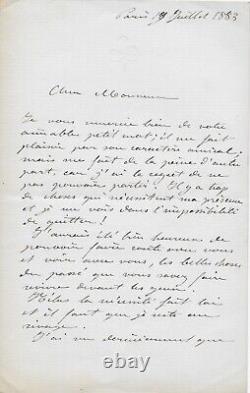 Paris 19 Juillet 1883
Cher Monsieur
Je vous remercie bien de votre
aimable petit mot; il me fait
plaisir par son caractère amical;
mais me fait de la peine d'autre
part, car j'ai le regret de ne
pas pouvoir partir. Il y a trop
de choses qui nécessitent ma présence
et je me vois dans l'impossibilité
de quitter!
J'aurais été bien heureux de
pouvoir faire route avec vous
et voir avec vous, les belles choses
du passé que vous savez faire
revivre devant les yeux.
Hélas la nécessité fait loi
et il faut que je reste au
rivage.
J'ai vu dernièrement que
ebay